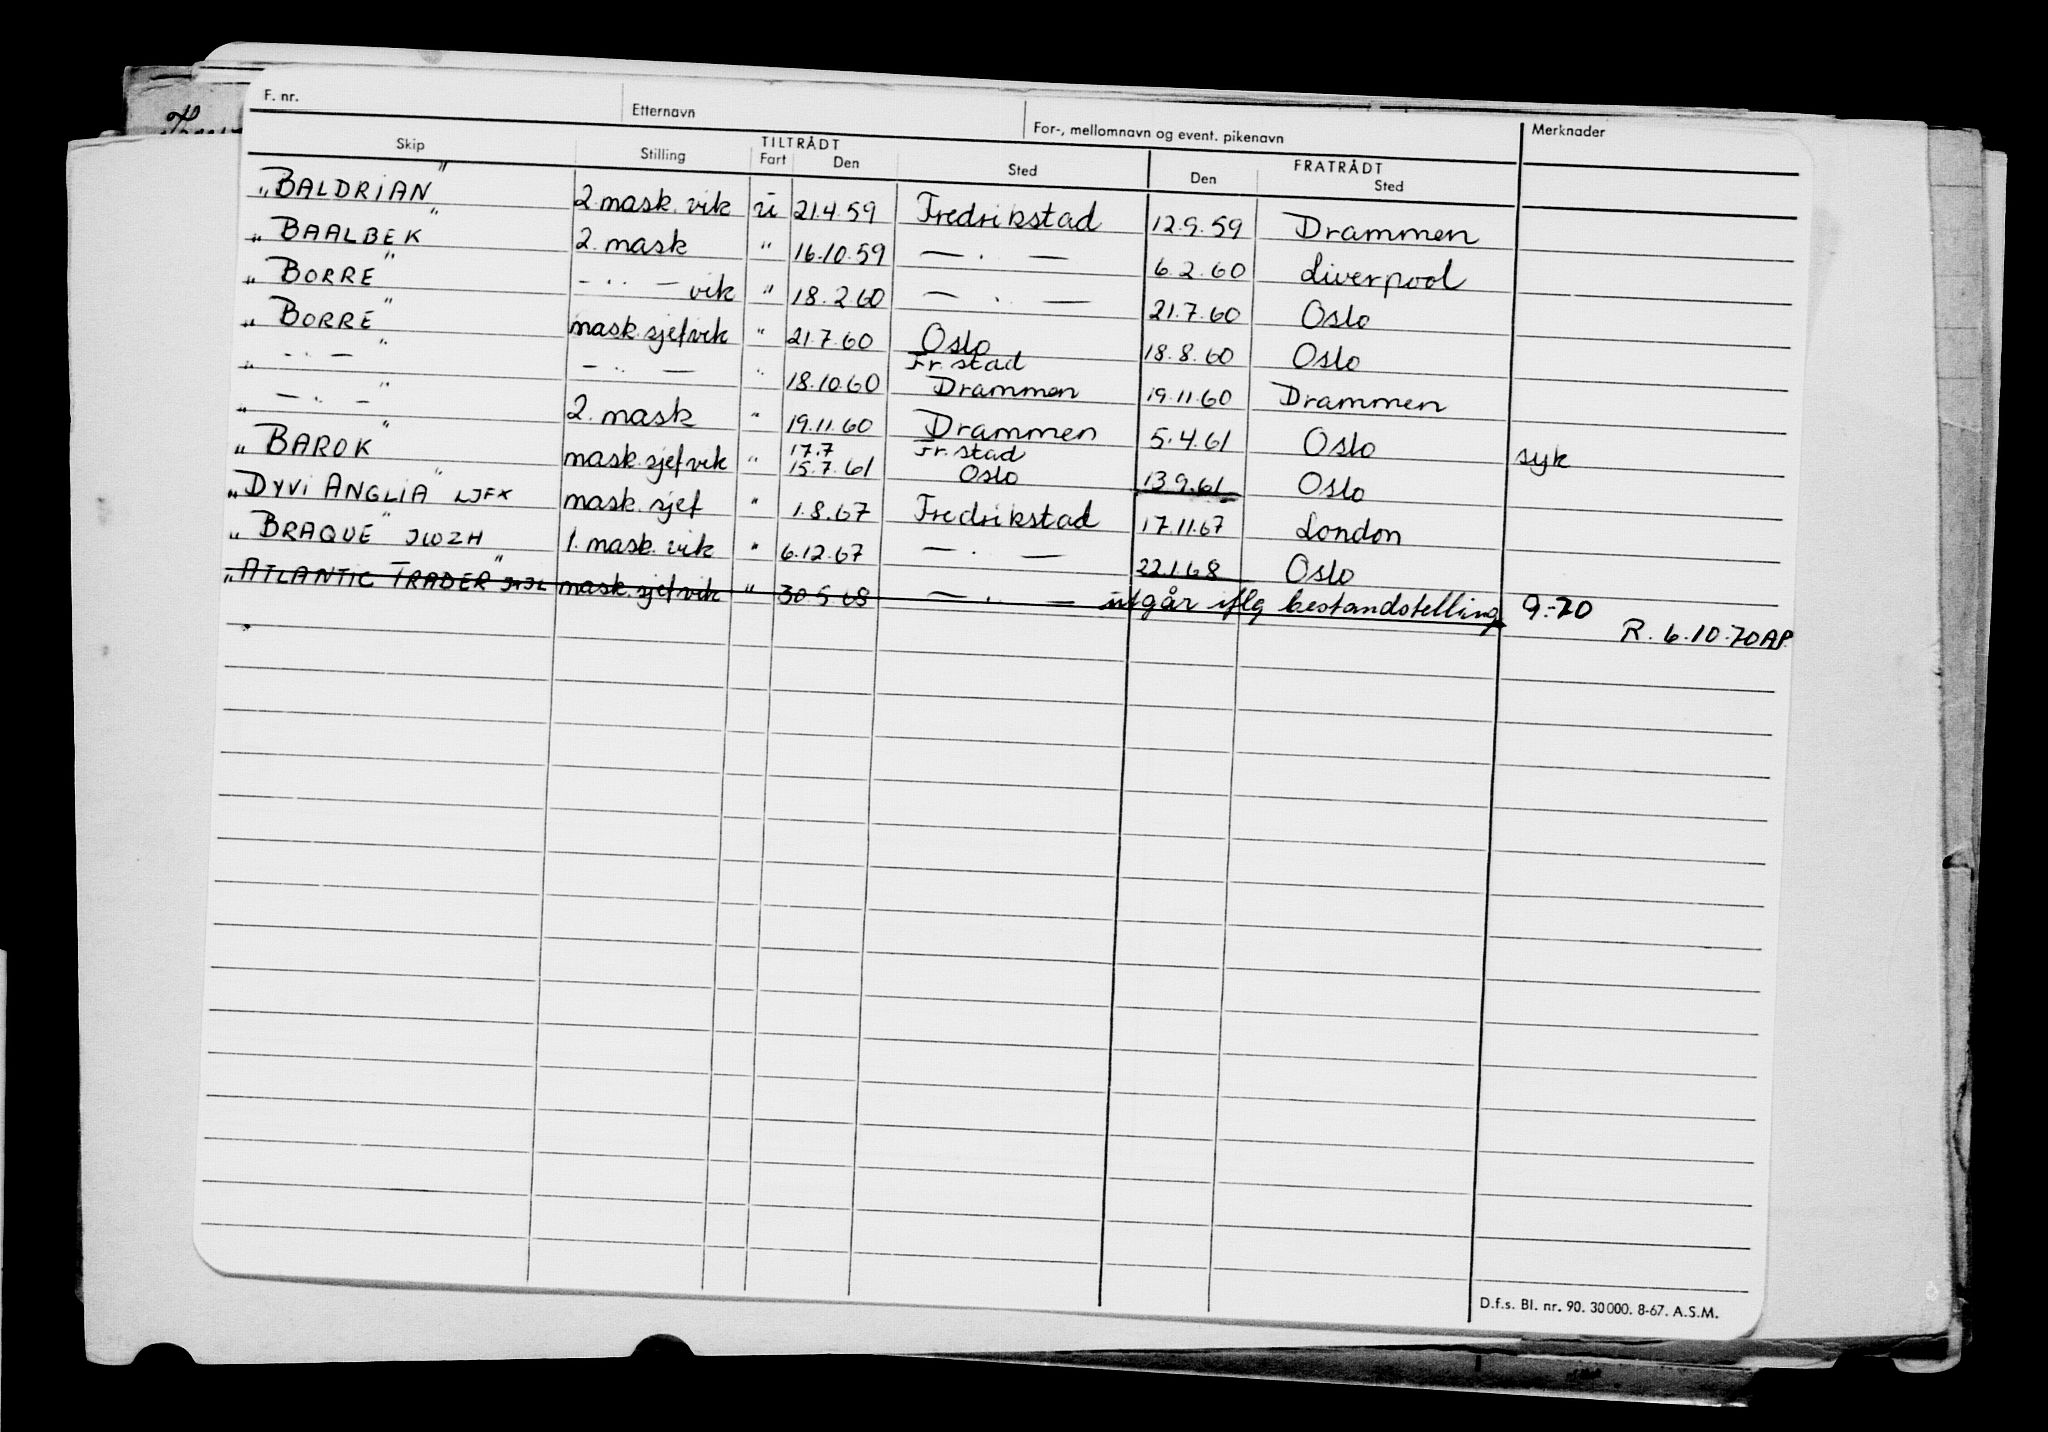 F. nr.
Etternavn
For-, mellomnavn og event. pikenavn
Merknader
Skip
Stilling
TILTRÅDT
Fart
Den
Sted
FRATRÅDT
Den
Sted
"BALDRIAN" 2. mask. vik u 21.4.59 Fredrikstad 12.9.59 Drammen
"BAALBEK" 2. mask " 16.10.59 — . — 6.2.60 Liverpool
"BORRE" - .. - vik " 18.2.60 — . — 21.7.60 Oslo
"BORRE" mask.sjefvik " 21.7.60 Oslo 18.8.60 Oslo
" - .. - " - .. — " 18.10.60 Fr.stad Drammen 19.11.60 Drammen
" - . - " 2. mask " 19.11.60 Drammen 5.4.61 Oslo syk
"BAROK" mask.sjefvik " 17.7 15.7.61 Fr.stad Oslo 13.9.61 Oslo
"DYVI ANGLIA" LJFX mask.sjef " 1.8.67 Fredrikstad 17.11.67 London
"BRAQUE" JWZH 1. mask. vik " 6.12.67 — . — 22.1.68 Oslo
"ATLANTIC TRADER" mask.sjefvik " 30.5.68 — .. — utgår iflg bestandstelling 9.-70
R. 6.10.70 AP.
D.f.s. Bl. nr. 90. 30000. 8-67. A.S.M.